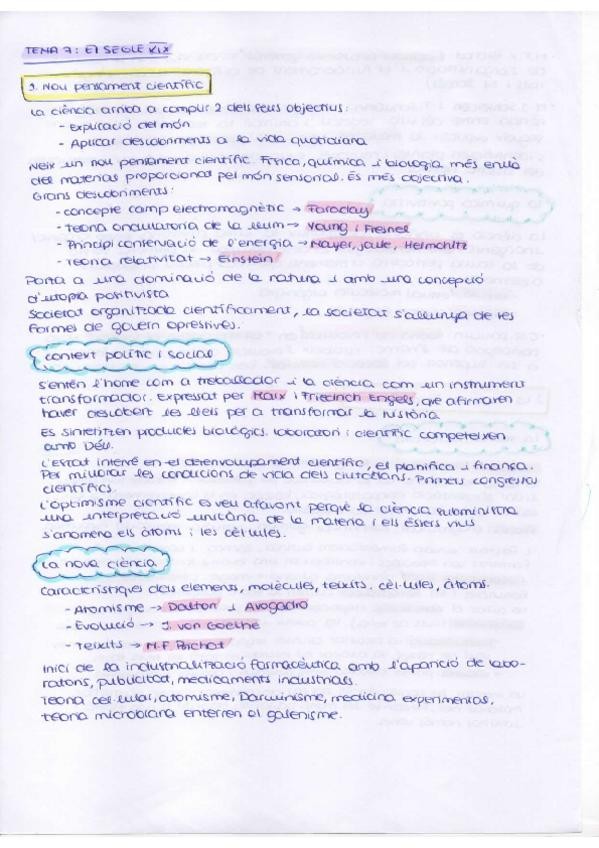 TEMA 7: El SEGLE XIX
1. Nou pensament científic
La ciència arriba a complir 2 dels seus objectius:
- Explicació del món
- Aplicar descobriments a la vida quotidiana
Neix un nou pensament científic. Física, química i biologia més enllà
del materias proporcionat pel món sensorial. És més objectiva.
Grans descobriments:
- concepte camp electromagnètic → Faraday
- Teoria ondulatoria de la llum → Young i Fresnel
- Principi conservació de l'energia → Mayer, Joule, Helmholtz
- Teoria relativitat → Einstein
Porta a una dominació de la natura i amb una concepció
d'utopia positivista
Societat organitzada científicament, la societat s'allunya de les
formes de govern opressives.
context polític i social
S'entén l'home com a treballador i la ciència com un instrument
transformador. Expressat per Marx i Friedrich Engels, que afirmaven
haver descobert les lleis per a transformar la història.
Es sintetitzen productes biològics. Laboratori i científic competeixen
amb Déu.
L'Estat intervé en el desenvolupament científic, el planifica i finança.
Per millorar les condicions de vida dels ciutadans. Primers congressos
científics.
L'optimisme científic es veu afavorit perquè la ciència subministra
una interpretació unitària de la materia i els éssers vius
s'anomena els àtoms i les cèl·lules.
La nova ciència
Característiques dels elements, molècules, teixits, cèl·lules, àtoms.
- Atomisme → Dalton i Avogadro
- Evolució → J. von Goethe
- Teixits → M.F. Bichat
Inici de la industrialització farmacèutica amb l'aparició de labo-
ratoris, publicitat, medicaments industrials.
Teoria cel·lular, atomisme, Darwinisme, medicina experimental,
teoria microbiana enterren el galenisme.